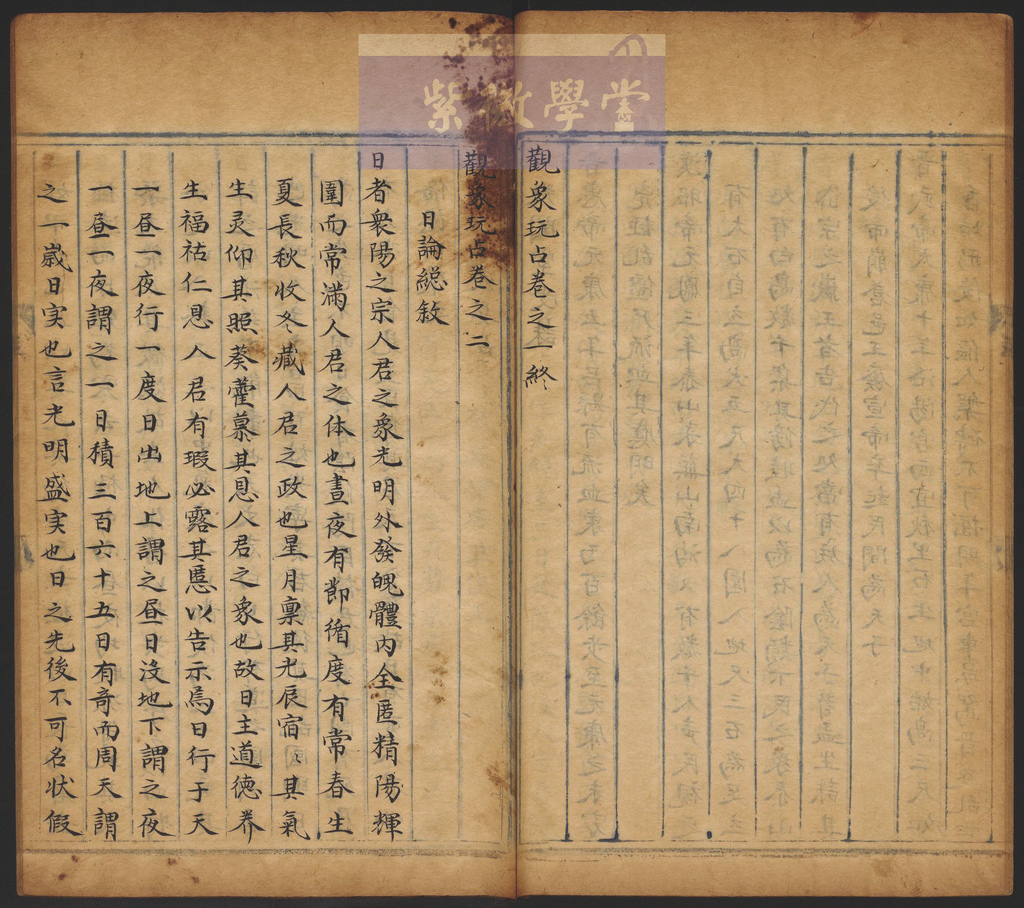 紫微學堂
觀象玩占卷之一終
觀象玩占卷之二
日論緫敘
日者衆陽之宗人君之象光明外發魄體內全匿精陽輝
圓而常滿人君之体也晝夜有節循度有常春生
夏長秋收冬藏人君之政也星月禀其光辰宿〻其氣
生灵仰其照葵藿慕其恩人君之象也故日主道德养
生福祐仁恩人君有瑕必露其慝以告示焉日行于天
一昼一夜行一度日出地上謂之昼日沒地下謂之夜
一昼一夜謂之一日積三百六十五日有奇而周天謂
之一歲日实也言光明盛实也日之先後不可名状假